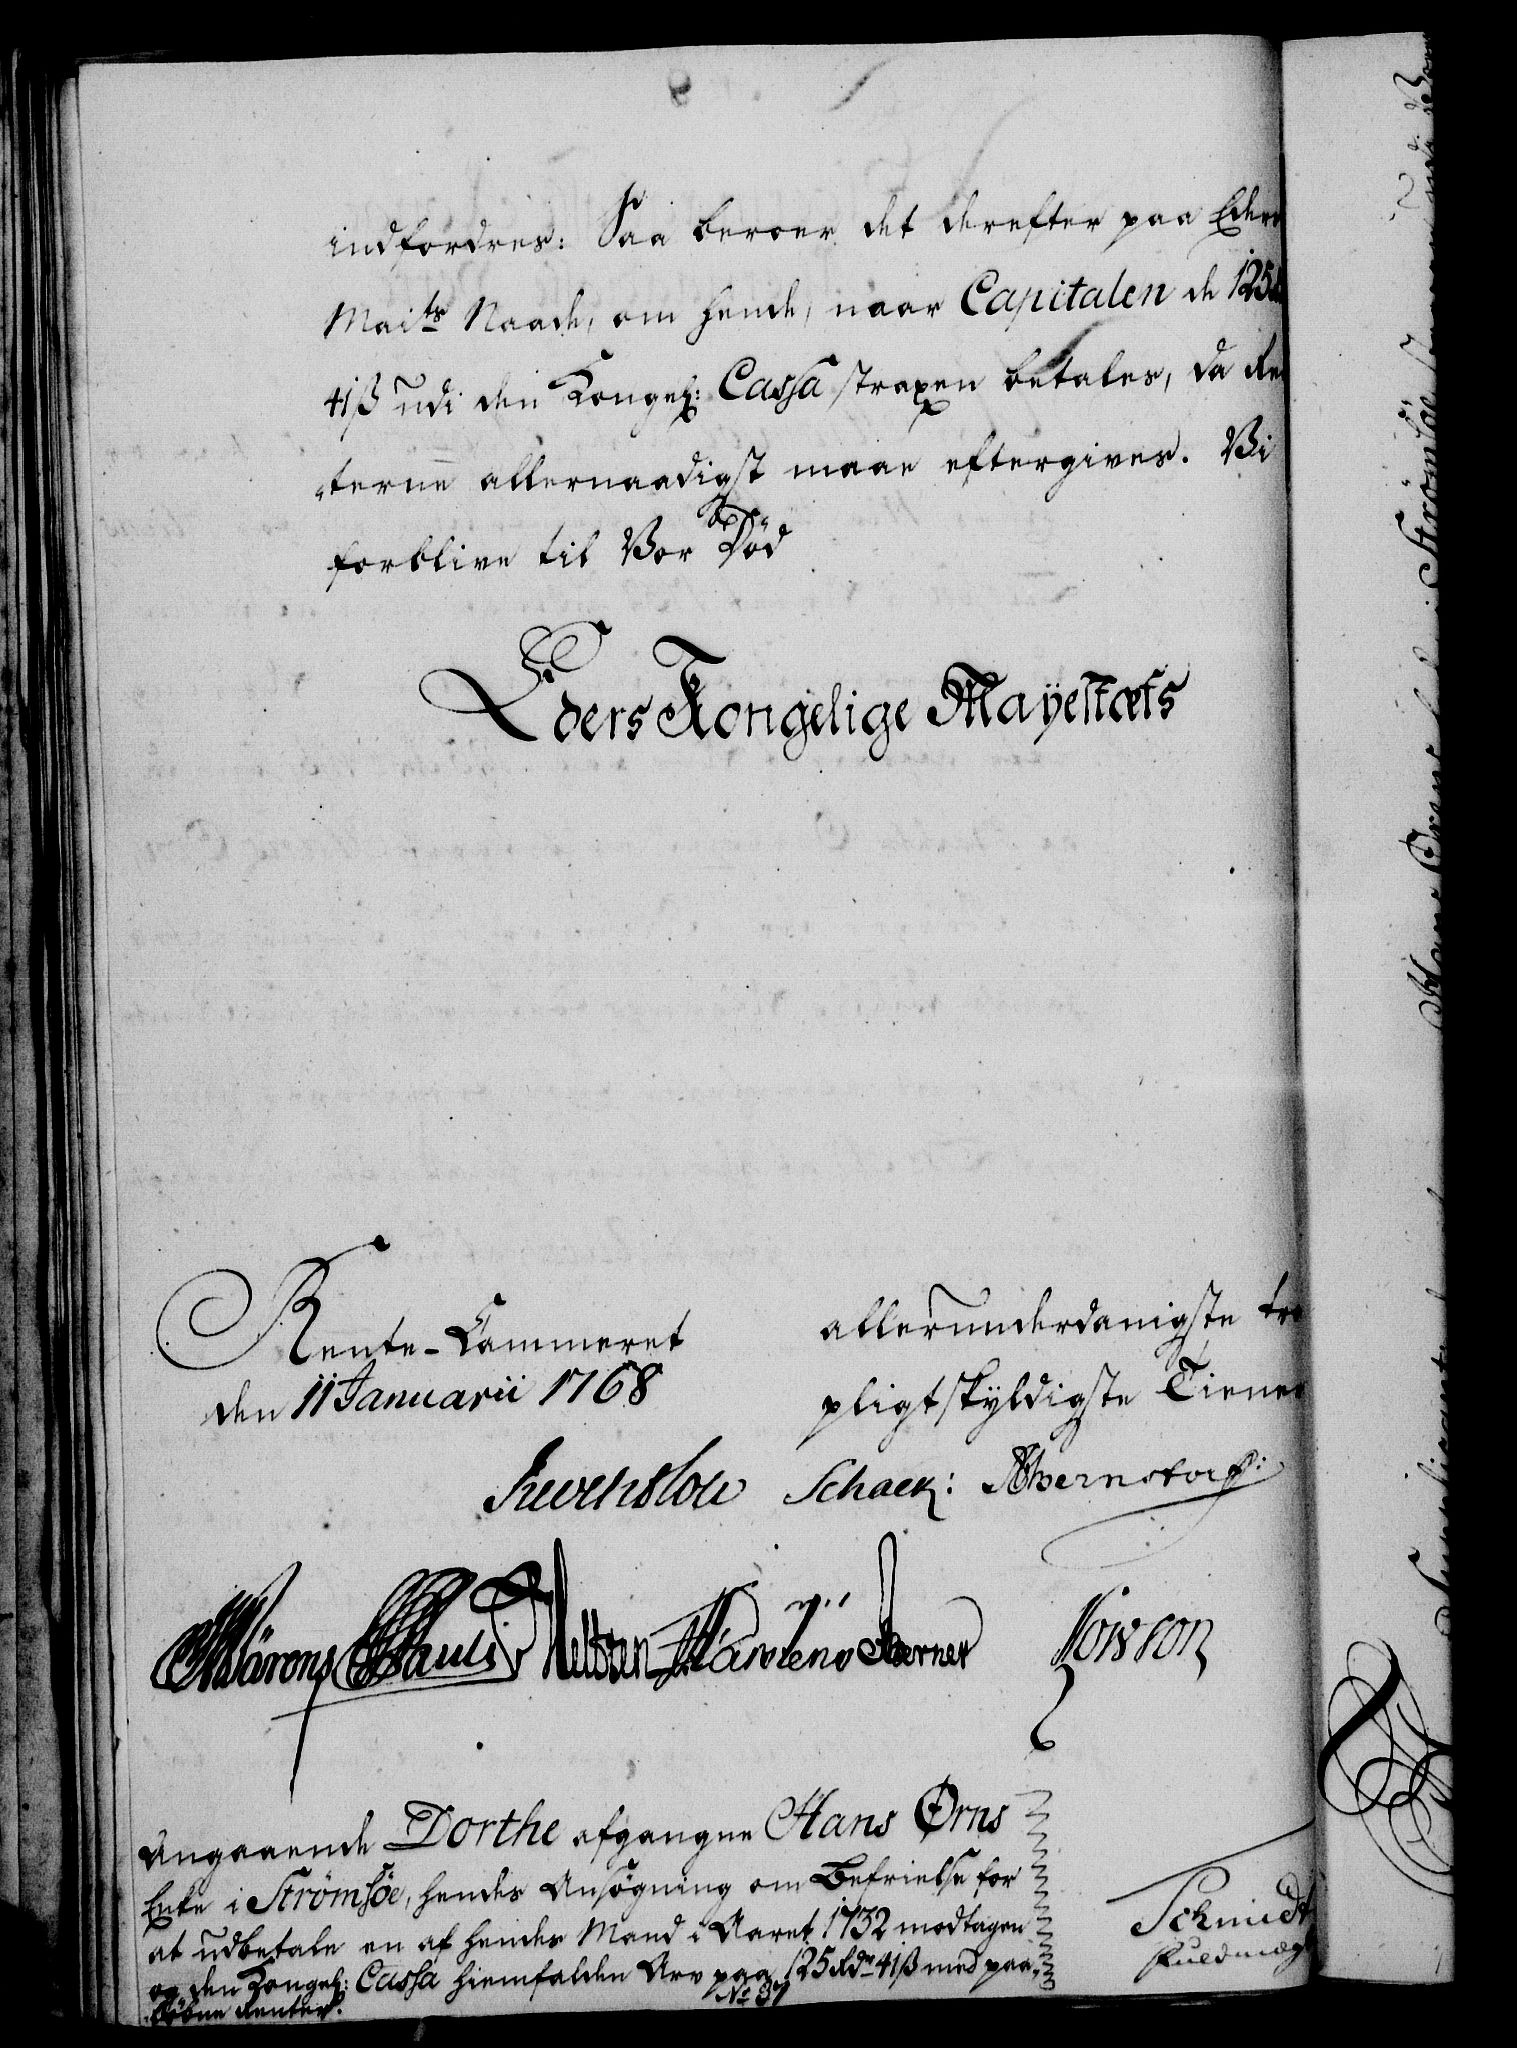 indfordres: Saa beroer det derefter paa Eders
Maits Naade, om hende, naar Capitalen de 125
41ß udi den Kongel: Cassa straxen betales, da Ren
terne allernaadigst maae eftergives. Vi
forblive til Vor Død
Eders Kongelige Mayestæts
Rente-Cammeret
den 11 Januarii 1768
allerunderdanigste tro
pligtskyldigste Tiener
Reventlou Schack: Bernstorf:
Pauli Neltzen Berner
Angaaende Dorthe afgangne Hans Ørns
Enke i Strömsöe, hendes Ansøgning om Befrielse for
at udbetale en af hendes Mand i Aaret 1732 modtagen
og den Kongel: Cassa hiemfalden Arv paa 125 rdr 41ß med paa-
løbne Renter.
No 37
Schmidt
Fuldmægt